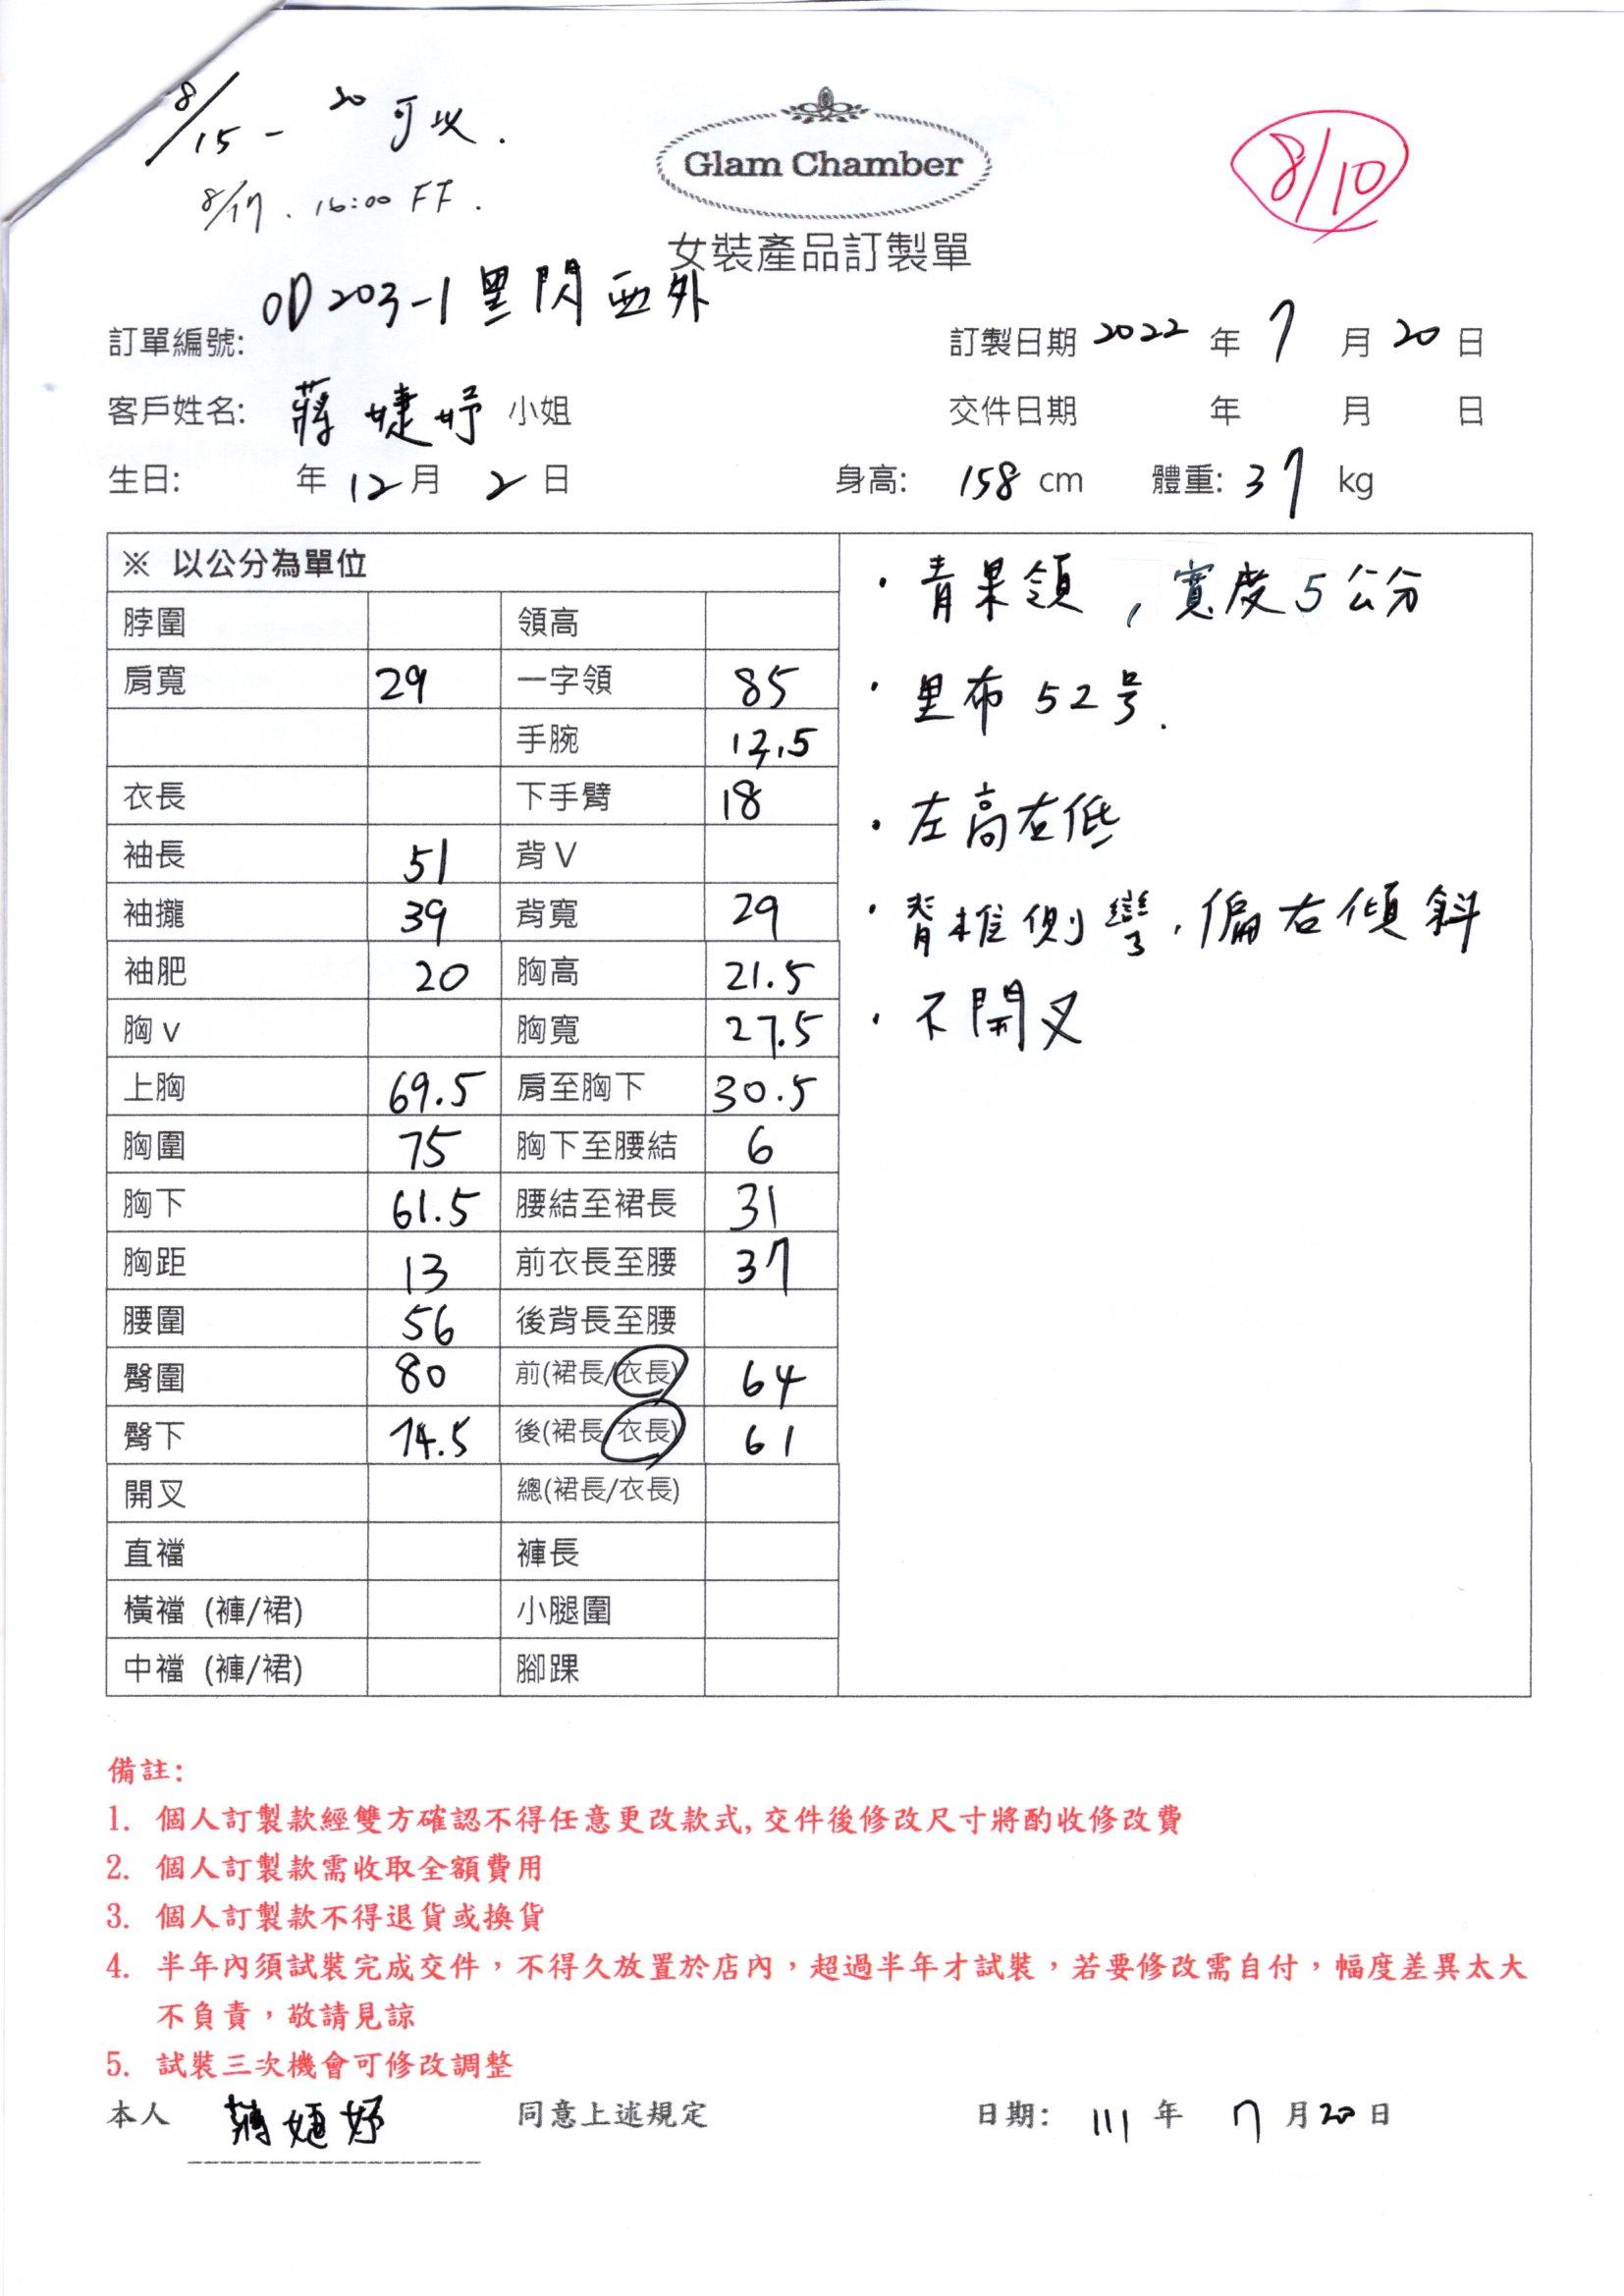 8/15 - 20 可以.
8/17. 16:00 FF.
Glam Chamber
8/10
女裝產品訂製單
訂單編號: OD203-1 黑閃西外
訂製日期 2022 年 7 月 20 日
客戶姓名: 蔣婕妤 小姐
交件日期 年 月 日
生日: 年 12 月 2 日
身高: 158 cm 體重: 37 kg
※ 以公分為單位
脖圍 領高
肩寬 29 一字領 85
手腕 13.5
衣長 下手臂 18
袖長 51 背V
袖攏 39 背寬 29
袖肥 20 胸高 21.5
胸v 胸寬 27.5
上胸 69.5 肩至胸下 30.5
胸圍 75 胸下至腰結 6
胸下 61.5 腰結至裙長 31
胸距 13 前衣長至腰 37
腰圍 56 後背長至腰
臀圍 80 前(裙長/衣長) 64
臀下 74.5 後(裙長/衣長) 61
開叉 總(裙長/衣長)
直襠 褲長
橫襠 (褲/裙) 小腿圍
中襠 (褲/裙) 腳踝
· 青果領，寬度5公分
· 里布 52号.
· 左高右低
· 脊椎側彎，偏右傾斜
· 不開叉
備註:
1. 個人訂製款經雙方確認不得任意更改款式, 交件後修改尺寸將酌收修改費
2. 個人訂製款需收取全額費用
3. 個人訂製款不得退貨或換貨
4. 半年內須試裝完成交件，不得久放置於店內，超過半年才試裝，若要修改需自付，幅度差異太大
不負責，敬請見諒
5. 試裝三次機會可修改調整
本人 蔣婕妤 同意上述規定 日期: 111 年 7 月 20 日